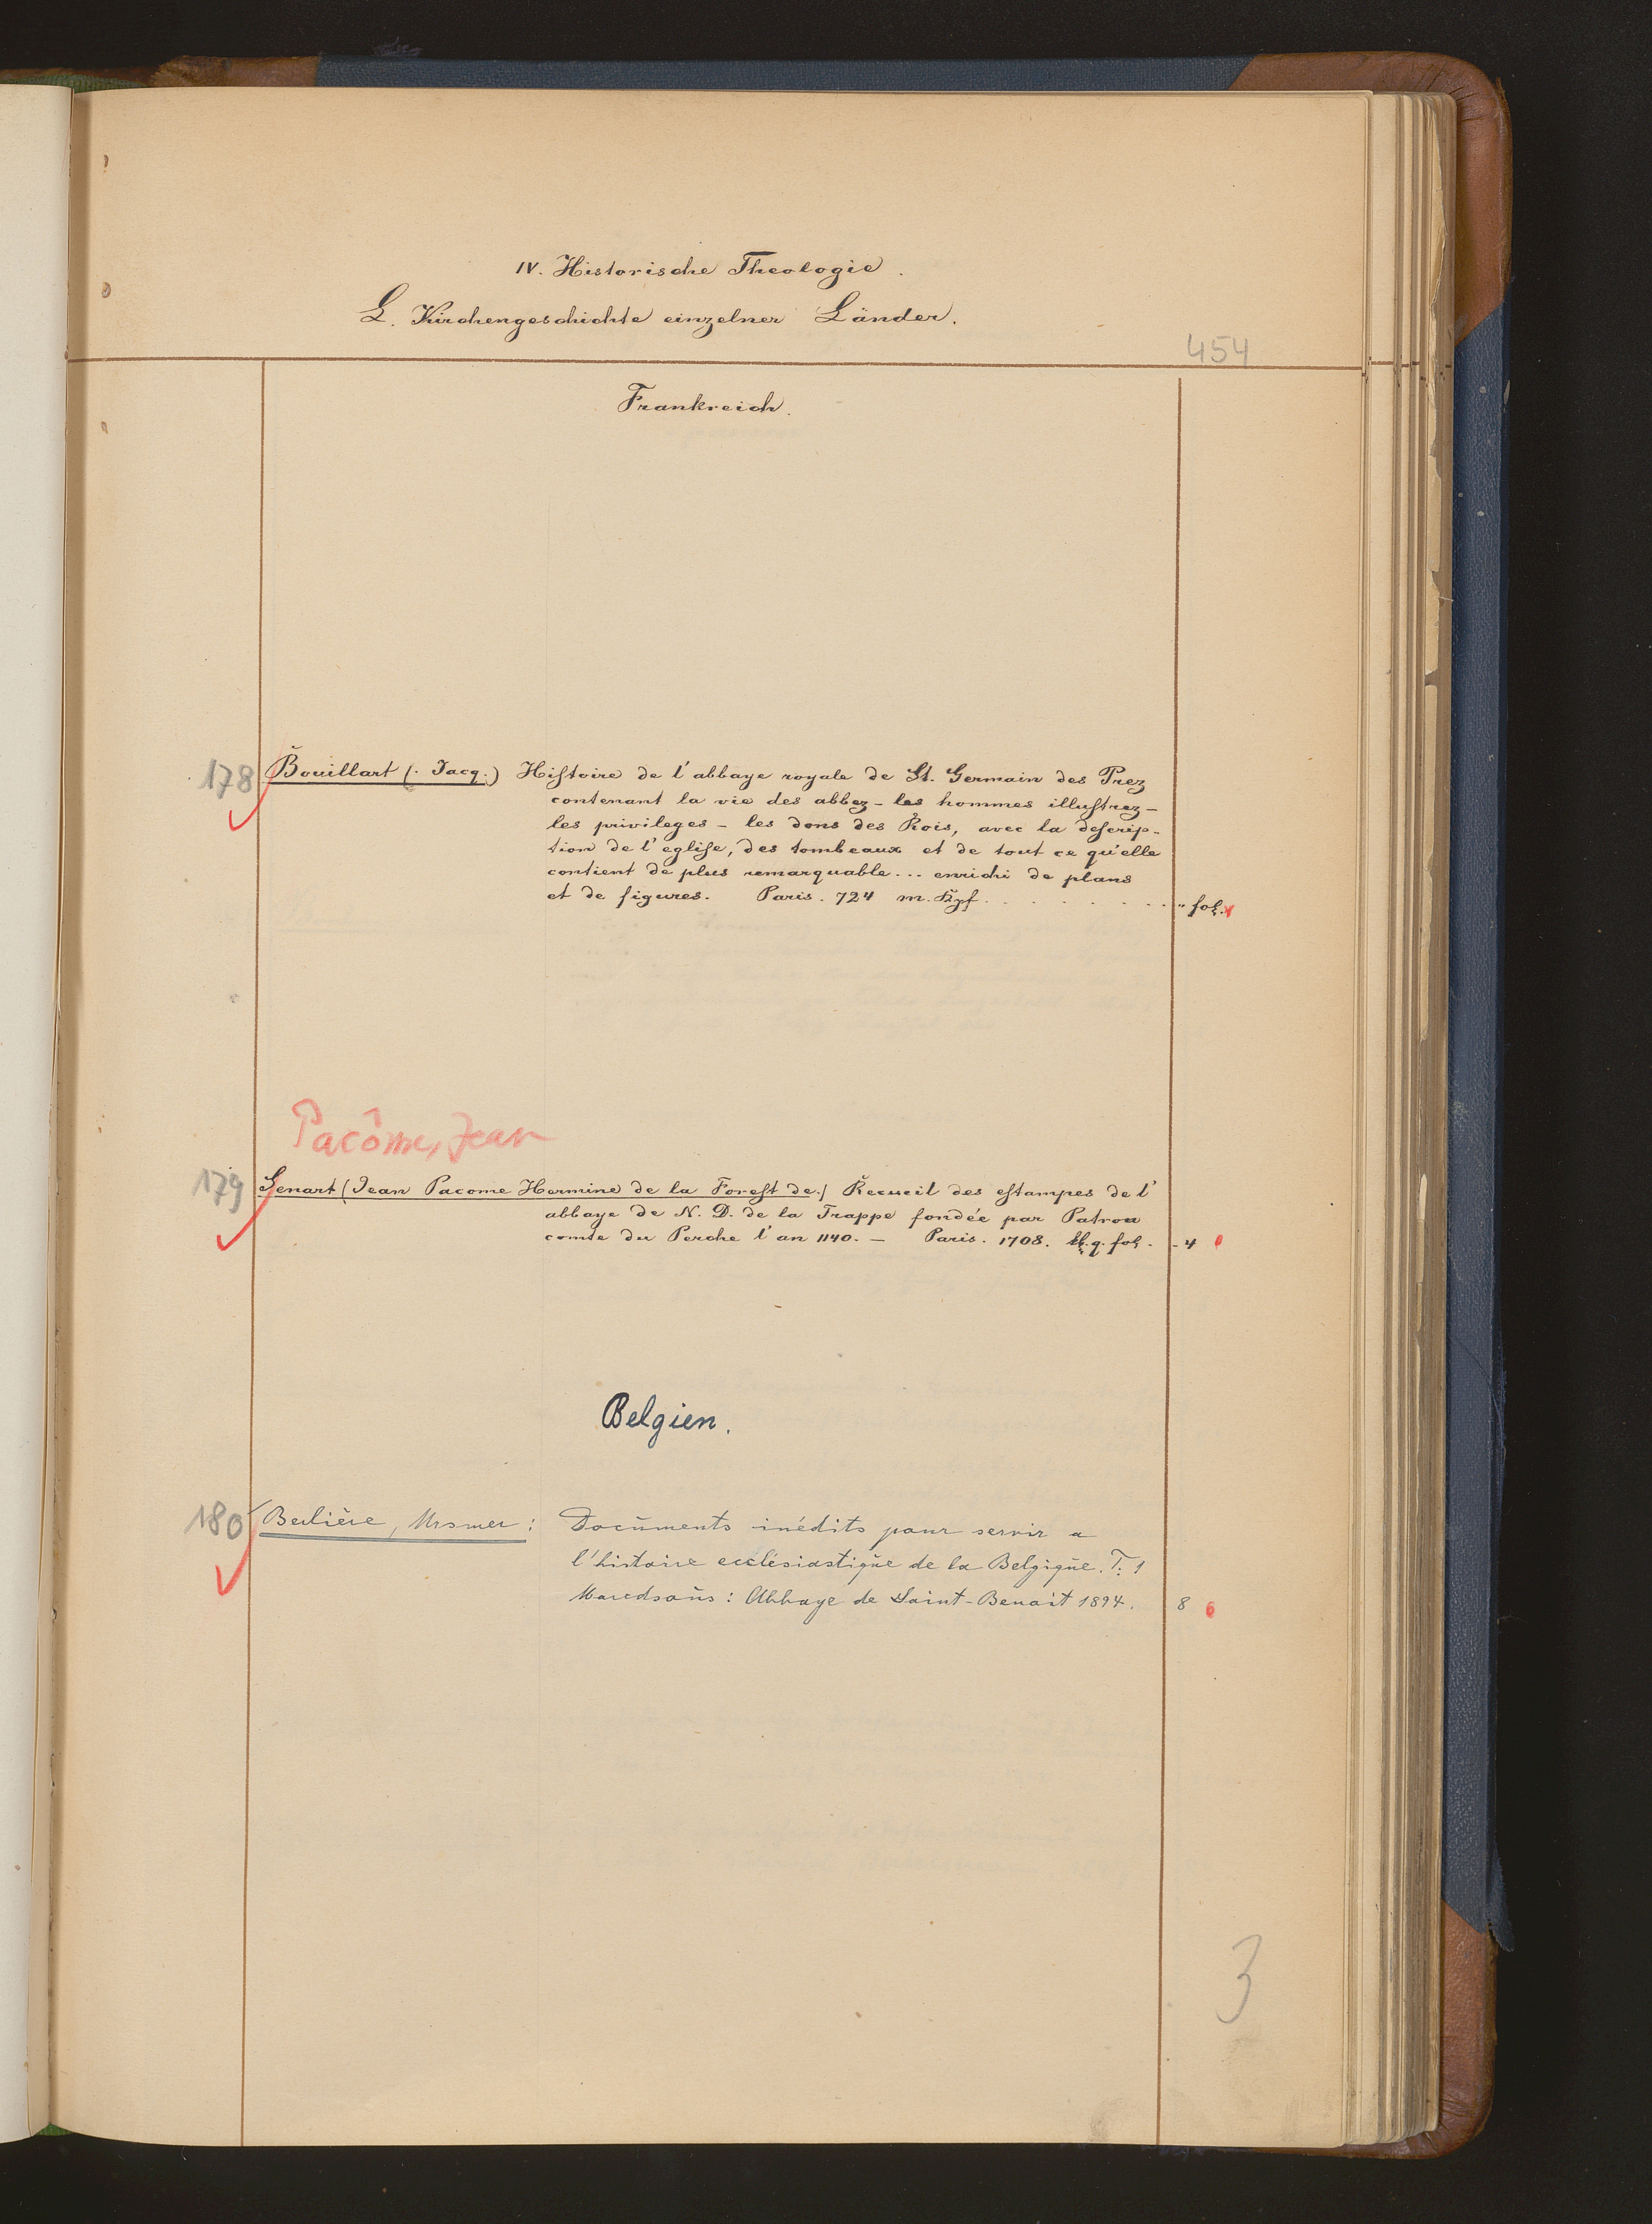 IV. Historische Theologie.
L. Kirchengeschichte einzelner Länder.
454
Frankreich.
178 Bouillart (. Jacq.) Histoire de l'abbaye royale de St. Germain des Prez
contenant la vie des abbez – les hommes illustrez –
les privileges – les dons des Rois, avec la descrip-
tion de l'eglise, des tombeaux et de tout ce qu'elle
contient de plus remarquable ... enrichi de plans
et de figures. Paris. 724 m. Kpf. . . . . . . . . fol.
Pacôme, Jean
179 Lenart (Jean Pacome Hermine de la Forest de.) Recueil des estampes de l'
abbaye de N. D. de la Trappe fondée par Patrou
comte du Perche l'an 1140. – Paris. 1708. q. fol. - 4
Belgien.
180 Berlière, Ursmer : Documents inédits pour servir a
l'histoire ecclésiastique de la Belgique. T. 1
Maredsous : Abbaye de Saint-Benoit 1894. 8
3